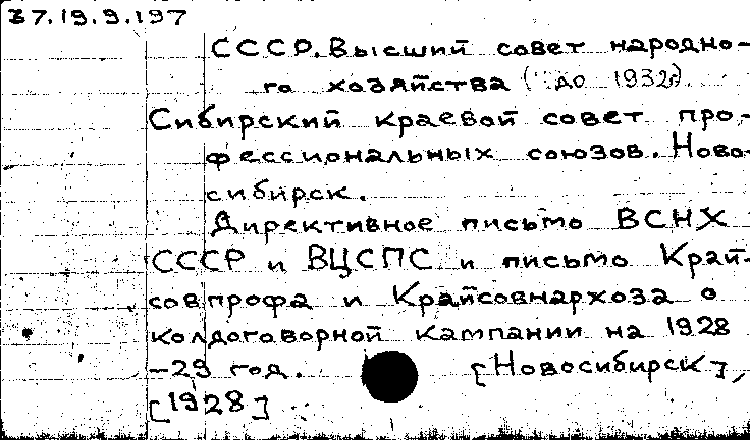 37.19.9.197
СССР. Высший совет народно-
го хозяйства (до 1932г)
Сибирский краевой совет про-
фессиональных союзов. Ново-
сибирск.
Директивное письмо ВСНХ
СССР и ВЦСПС и письмо Край-
совпрофа и Крайсовнархоза о
колдоговорной кампании на 1928
-29 год. [Новосибирск],
[1928]